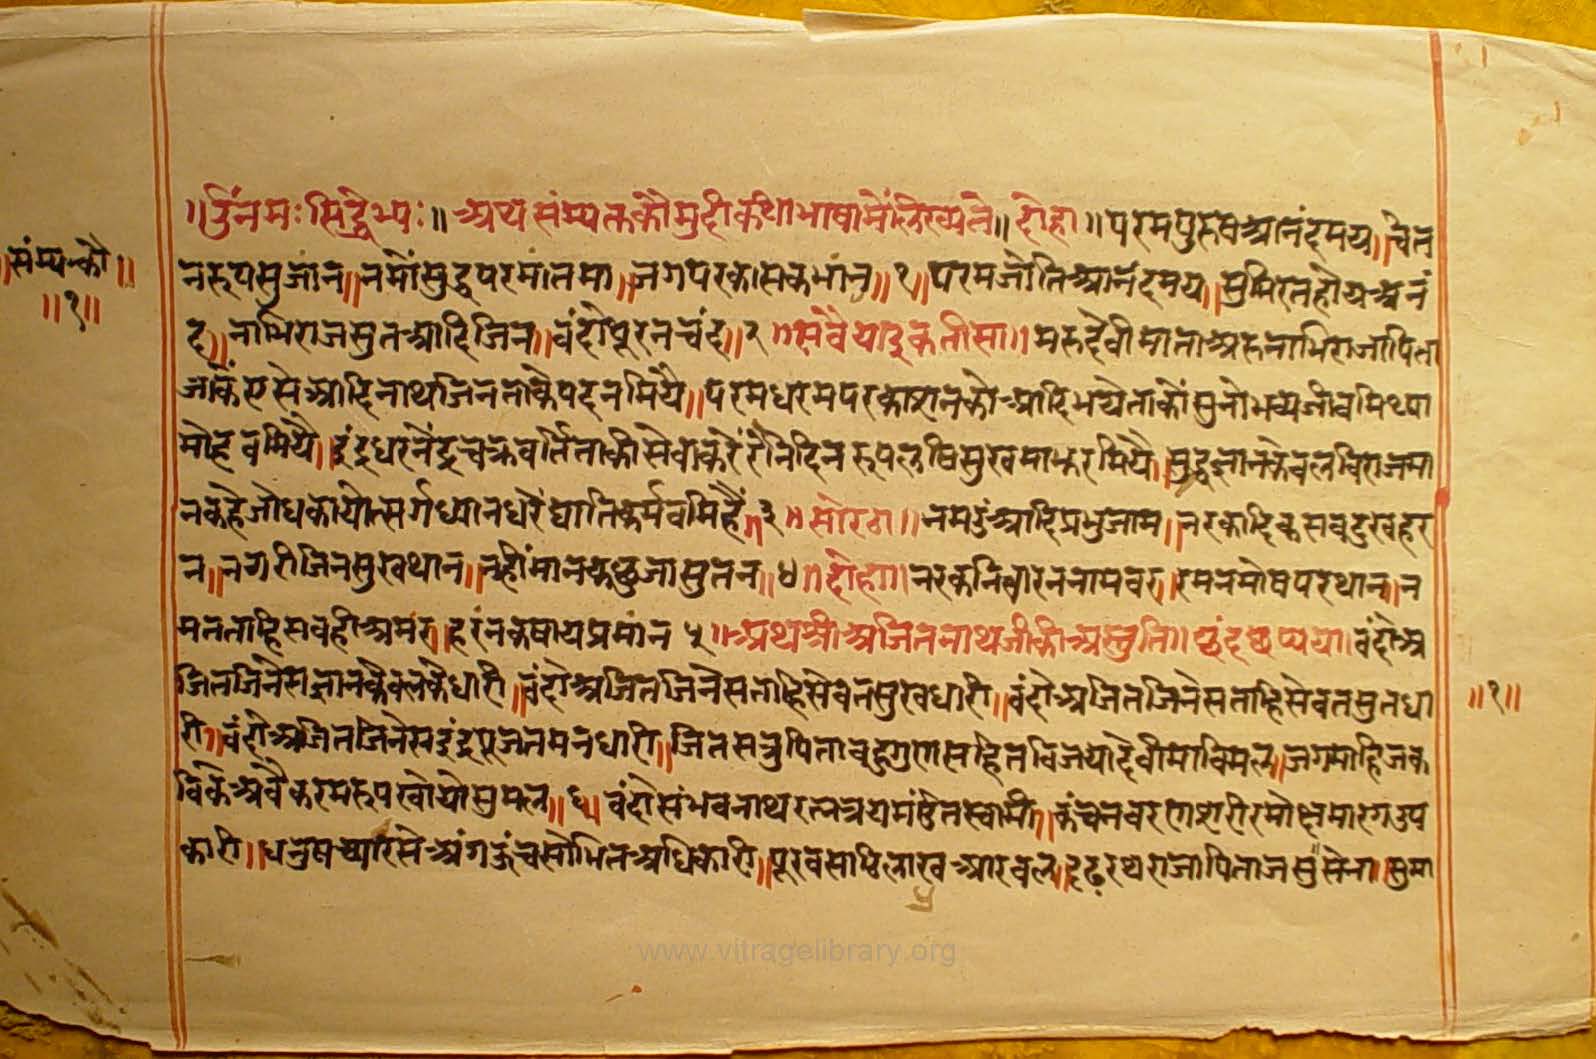 ॥उंनमःसिद्धेभ्यः॥ अथ संम्यक्तकौमुदीकथाभाषामैंलिख्यते॥ दोहा॥ परमपुरुषआनंदमय॥चेत
॥संम्यक्कौ॥
॥१॥
नरूपसुजांन॥नमोंसुद्धपरमांतमा॥जगपरकासकभांन॥१॥परमजोतिआनंदमय॥सुमिरतहोयअनं
द॥नाभिराजसुतआदिजिन॥वंदोंपूरनचंद॥२॥सवैयाइकतीसा॥मरुदेवीमाताअरुनाभिराजापिता
जाकैंएसेआदिनाथजिनताकेपदनमियै॥परमधरमपरकाशनकोआदिभयेताकौंसुनोभव्यजीवमिथ्या
मोहवमियै॥इंद्रधरनेंद्रचक्रवर्तिताकीसेवाकरैंरैनिदिनरूपलषिसुखमाझरमियै॥सुद्धज्ञानकेवलविराजमा
नकहेजोधकायोत्सर्गध्यानधरैंघातिकर्मवमिहैं॥३॥सोरठा॥नमउंआदिप्रभुजाम॥नरकादिकसबदुखहर
न॥नगरीजिनसुखथान॥नहींमानकछुजासुतन॥४॥दोहा॥नरकनिवारननामवरु॥रमनमोषपरथान॥न
मतताहिसवहीअमरु॥हरंनकषायप्रमांन५॥अथश्रीअजितनाथजीकीअस्तुति॥छंदछप्पया॥वंदोंअ
जितजिनेसज्ञानकैवलकैधारी॥वंदोंअजितजिनेसताहिसेवतसुखधारी॥वंदोंअजितजिनेसताहिसेवतसुतधा
॥१॥
री॥वंदोंअजितजिनेसइंद्रपूजतमनधारी॥जितसत्रुपिताबहुगुणसहितविजयादेवीमाविमल॥जगमाहिजक
विकेअवैकरमरूपखोयोसुमल॥६॥वंदोंसंभवनाथरत्नत्रयमंडितस्वामी॥कंचनवरणशरीरमोक्षमारगउप
कारी॥धनुषच्यारिसेअंगऊंचसोभितअधिकारी॥पूरवसाठिलाखआरवल॥दृढरथराजापिताजसुसेना॥सुमा
www.vitragelibrary.org